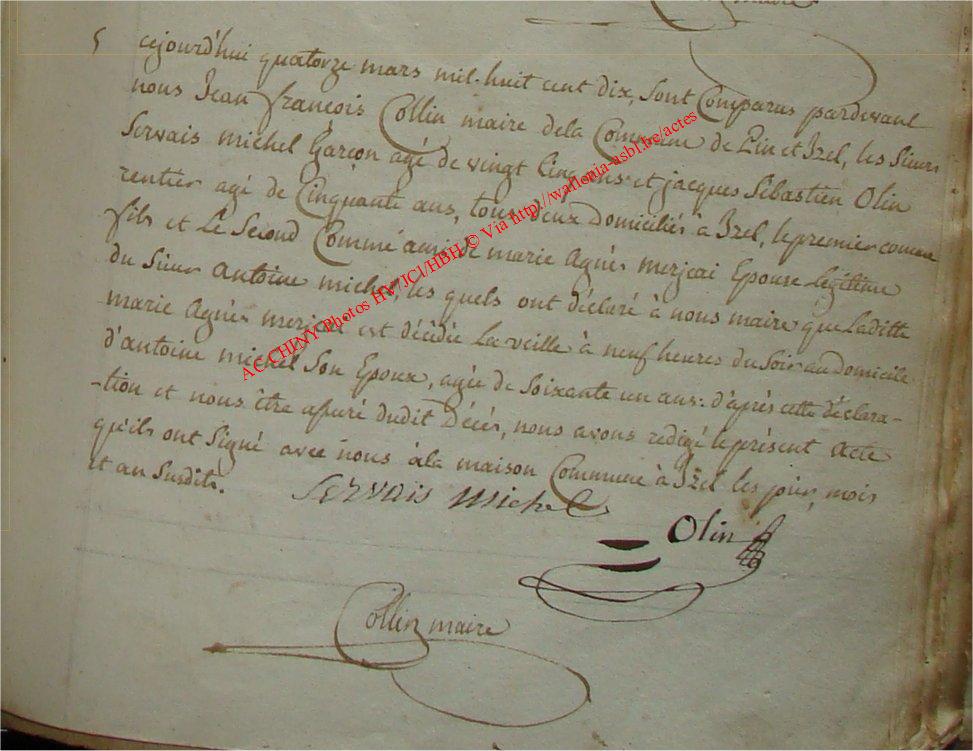 maire
5 cejourd'hui quatorze mars mil-huit cent dix, sont Comparus pardevant
nous Jean françois Collin maire dela Commune de Pin et Izel, les Sieurs
Servais michel Garçon agé de vingt Cinq ans et jacques Sébastien Olin
rentier agé de Cinquante ans, tous deux domiciliés à Izel, le premier comme
fils et Le Second Comme ami de marie Agnès merjai Epouse Légitime
du Sieur Antoine michel, les quels ont déclaré à nous maire que Laditte
marie Agnès merjai est décédée La veille à neuf heures du Soir au domicile
d'antoine michel Son Epoux, agée de Soixante un ans: d'après cette déclara-
-tion et nous être assuré dudit Décès, nous avons redigé le présent acte
qu'ils ont Signé avec nous àla maison Commune à Izel les jour, mois
et an Susdits.
Servais michel
Olin
Collin maire
AC CHINY Photos HV/JCl/HBH © Via http://wallonia-asbl.be/actes